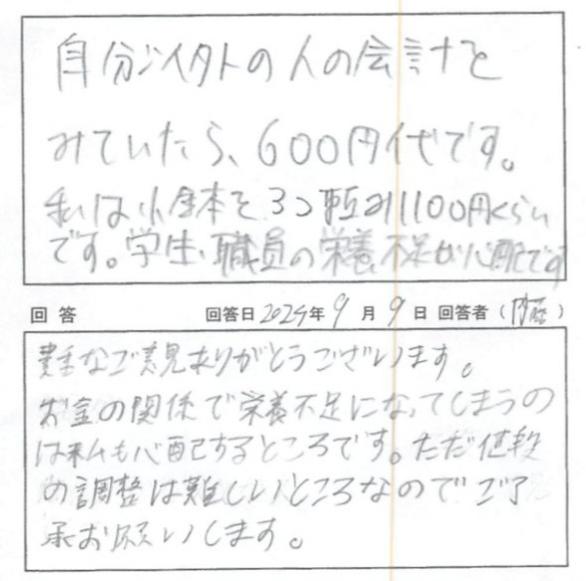 自分以外の人の会計を
みていたら、600円代です。
私は小鉢を3つ頼み1100円くらい
です。学生、職員の栄養不足が心配です
回答 回答日2024年9月9日 回答者(内藤)
貴重なご意見ありがとうございます。
お金の関係で栄養不足になってしまうの
は私も心配するところです。ただ値段
の調整は難しいところなのでご了
承お願いします。